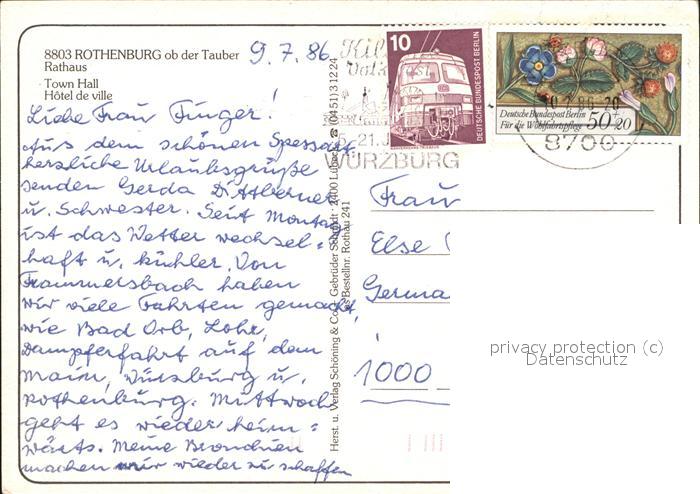 8803 ROTHENBURG ob der Tauber
Rathaus
Town Hall
Hôtel de ville
9.7.86
Liebe Frau Finger!
Aus dem schönen Spessart
herzliche Urlaubsgrüße
senden Gerda Dittberner
u. Schwester. Seit Montag
ist das Wetter wechsel=
haft u. kühler. Von
Frammersbach haben
wir viele Fahrten gemacht,
wie Bad Orb, Lohr,
Dampferfahrt auf dem
Main, Würzburg u.
Rothenburg. Mittwoch
geht es wieder heim=
wärts. Meine Bronchien
machen mir wieder zu schaffen
Herst. u. Verlag Schöning & Co + Gebrüder Schmidt · 2400 Lübeck ☎ (0451) 31224
Bestellnr. Rothau 241
10
DEUTSCHE BUNDESPOST BERLIN
Deutsche Bundespost Berlin
Für die Wohlfahrtspflege 50+20
21.
WÜRZBURG
8700
Frau
Else
Germa
1000
privacy protection (c)
Datenschutz